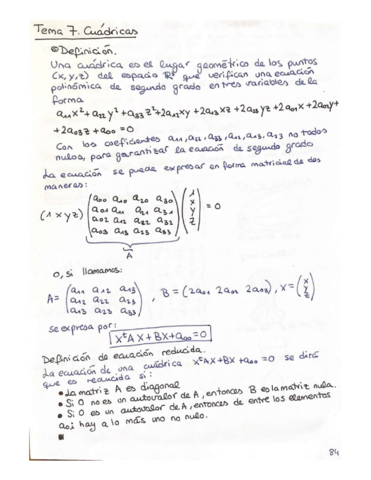 Tema 7. Cuádricas
Definición.
Una cuádrica es el lugar geométrico de los puntos
(x, y, z) del espacio ℝ³ que verifican una ecuación
polinómica de segundo grado en tres variables de la
forma
a₁₁x² + a₂₂y² + a₃₃z² + 2a₁₂xy + 2a₁₃xz + 2a₂₃yz + 2a₀₁x + 2a₀₂y +
+ 2a₀₃z + a₀₀ = 0
Con los coeficientes a₁₁, a₂₂, a₃₃, a₁₂, a₁₃ no todos
nulos, para garantizar la ecuación de segundo grado
La ecuación se puede expresar en forma matricial de dos
maneras:
(1 x y z) (a₀₀ a₁₀ a₂₀ a₃₀) (1) = 0
(a₀₁ a₁₁ a₂₁ a₃₁) (x)
(a₀₂ a₁₂ a₂₂ a₃₂) (y)
(a₀₃ a₁₃ a₂₃ a₃₃) (z)
A
o, si llamamos:
A = (a₁₁ a₁₂ a₁₃), B = (2a₀₁ 2a₀₂ 2a₀₃), X = (x)
(a₁₂ a₂₂ a₂₃) (y)
(a₁₃ a₂₃ a₃₃) (z)
se expresa por:
XᵗAX + BX + a₀₀ = 0
Definición de ecuación reducida.
La ecuación de una cuádrica XᵗAX + BX + a₀₀ = 0 se dirá
que es reducida si:
• La matriz A es diagonal
• Si 0 no es un autovalor de A, entonces B es la matriz nula.
• Si 0 es un autovalor de A, entonces de entre los elementos
a₀ᵢ hay a lo más uno no nulo.
84